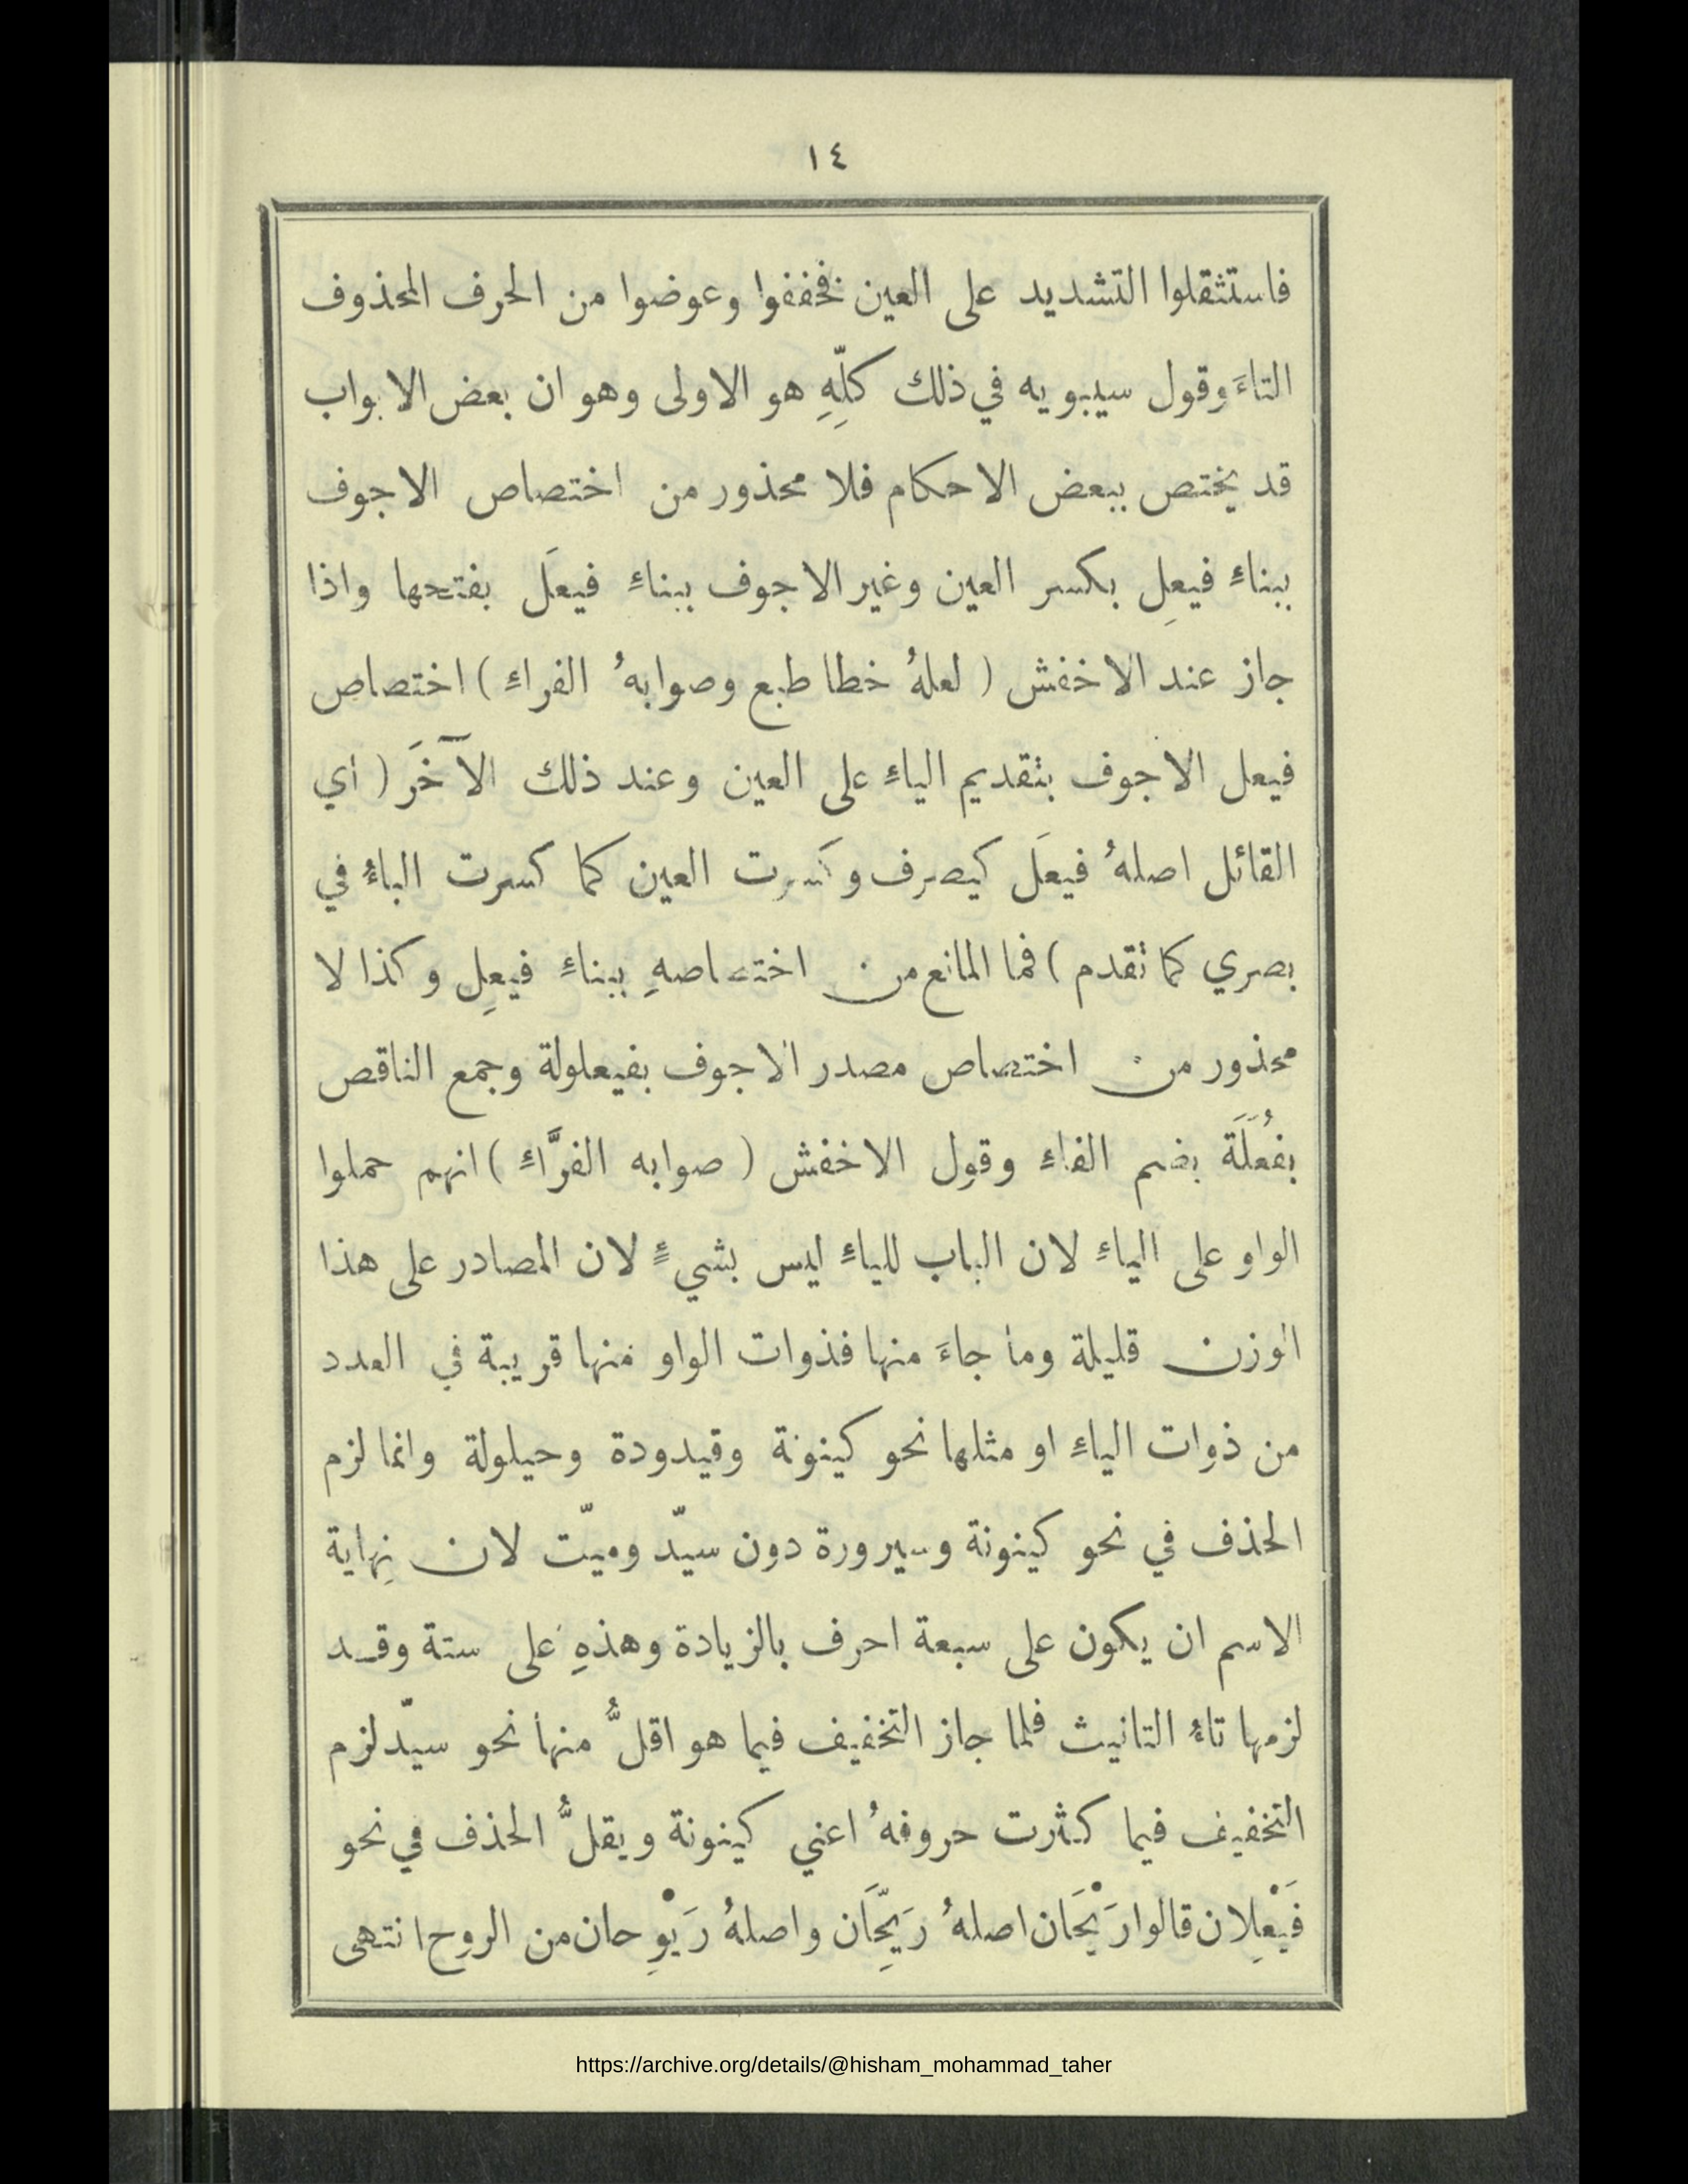 ١٤
فاستثقلوا التشديد على العين فخففوا وعوضوا من الحرف المحذوف
التاءَ وقول سيبويه في ذلك كلِّهِ هو الاولى وهو ان بعض الابواب
قد يختص ببعض الاحكام فلا محذور من اختصاص الاجوف
ببناءِ فيعِل بكسر العين وغير الاجوف ببناءِ فيعَل بفتحها واذا
جاز عند الاخفش ( لعلهُ خطا طبع وصوابهُ الفراءِ ) اختصاص
فيعل الاجوف بتقديم الياءِ على العين وعند ذلك الآخَر ( أي
القائل اصلهُ فيعَل كيصرف وكسرت العين كما كسرت الباءُ في
بصري كما تقدم ) فما المانع من اختصاصهِ ببناءِ فيعِل وكذا لا
محذور من اختصاص مصدر الاجوف بفيعلولة وجمع الناقص
بفُعَلَة بضم الفاءِ وقول الاخفش ( صوابه الفرَّاءِ ) انهم حملوا
الواو على الياءِ لان الباب للياءِ ليس بشيءٍ لان المصادر على هذا
الوزن قليلة وما جاءَ منها فذوات الواو منها قريبة في العدد
من ذوات الياءِ او مثلها نحو كينونة وقيدودة وحيلولة وانما لزم
الحذف في نحو كينونة وسيرورة دون سيّد وميّت لان نِهاية
الاسم ان يكون على سبعة احرف بالزيادة وهذهِ على ستة وقد
لزمها تاءُ التانيث فلما جاز التخفيف فيما هو اقلُّ منها نحو سيّد لزم
التخفيف فيما كثرت حروفهُ اعني كينونة ويقلُّ الحذف في نحو
فَيْعِلان قالوا رَيْحَان اصلهُ رَيِّحَان واصلهُ رَيْوِحان من الروح انتهى
https://archive.org/details/@hisham_mohammad_taher